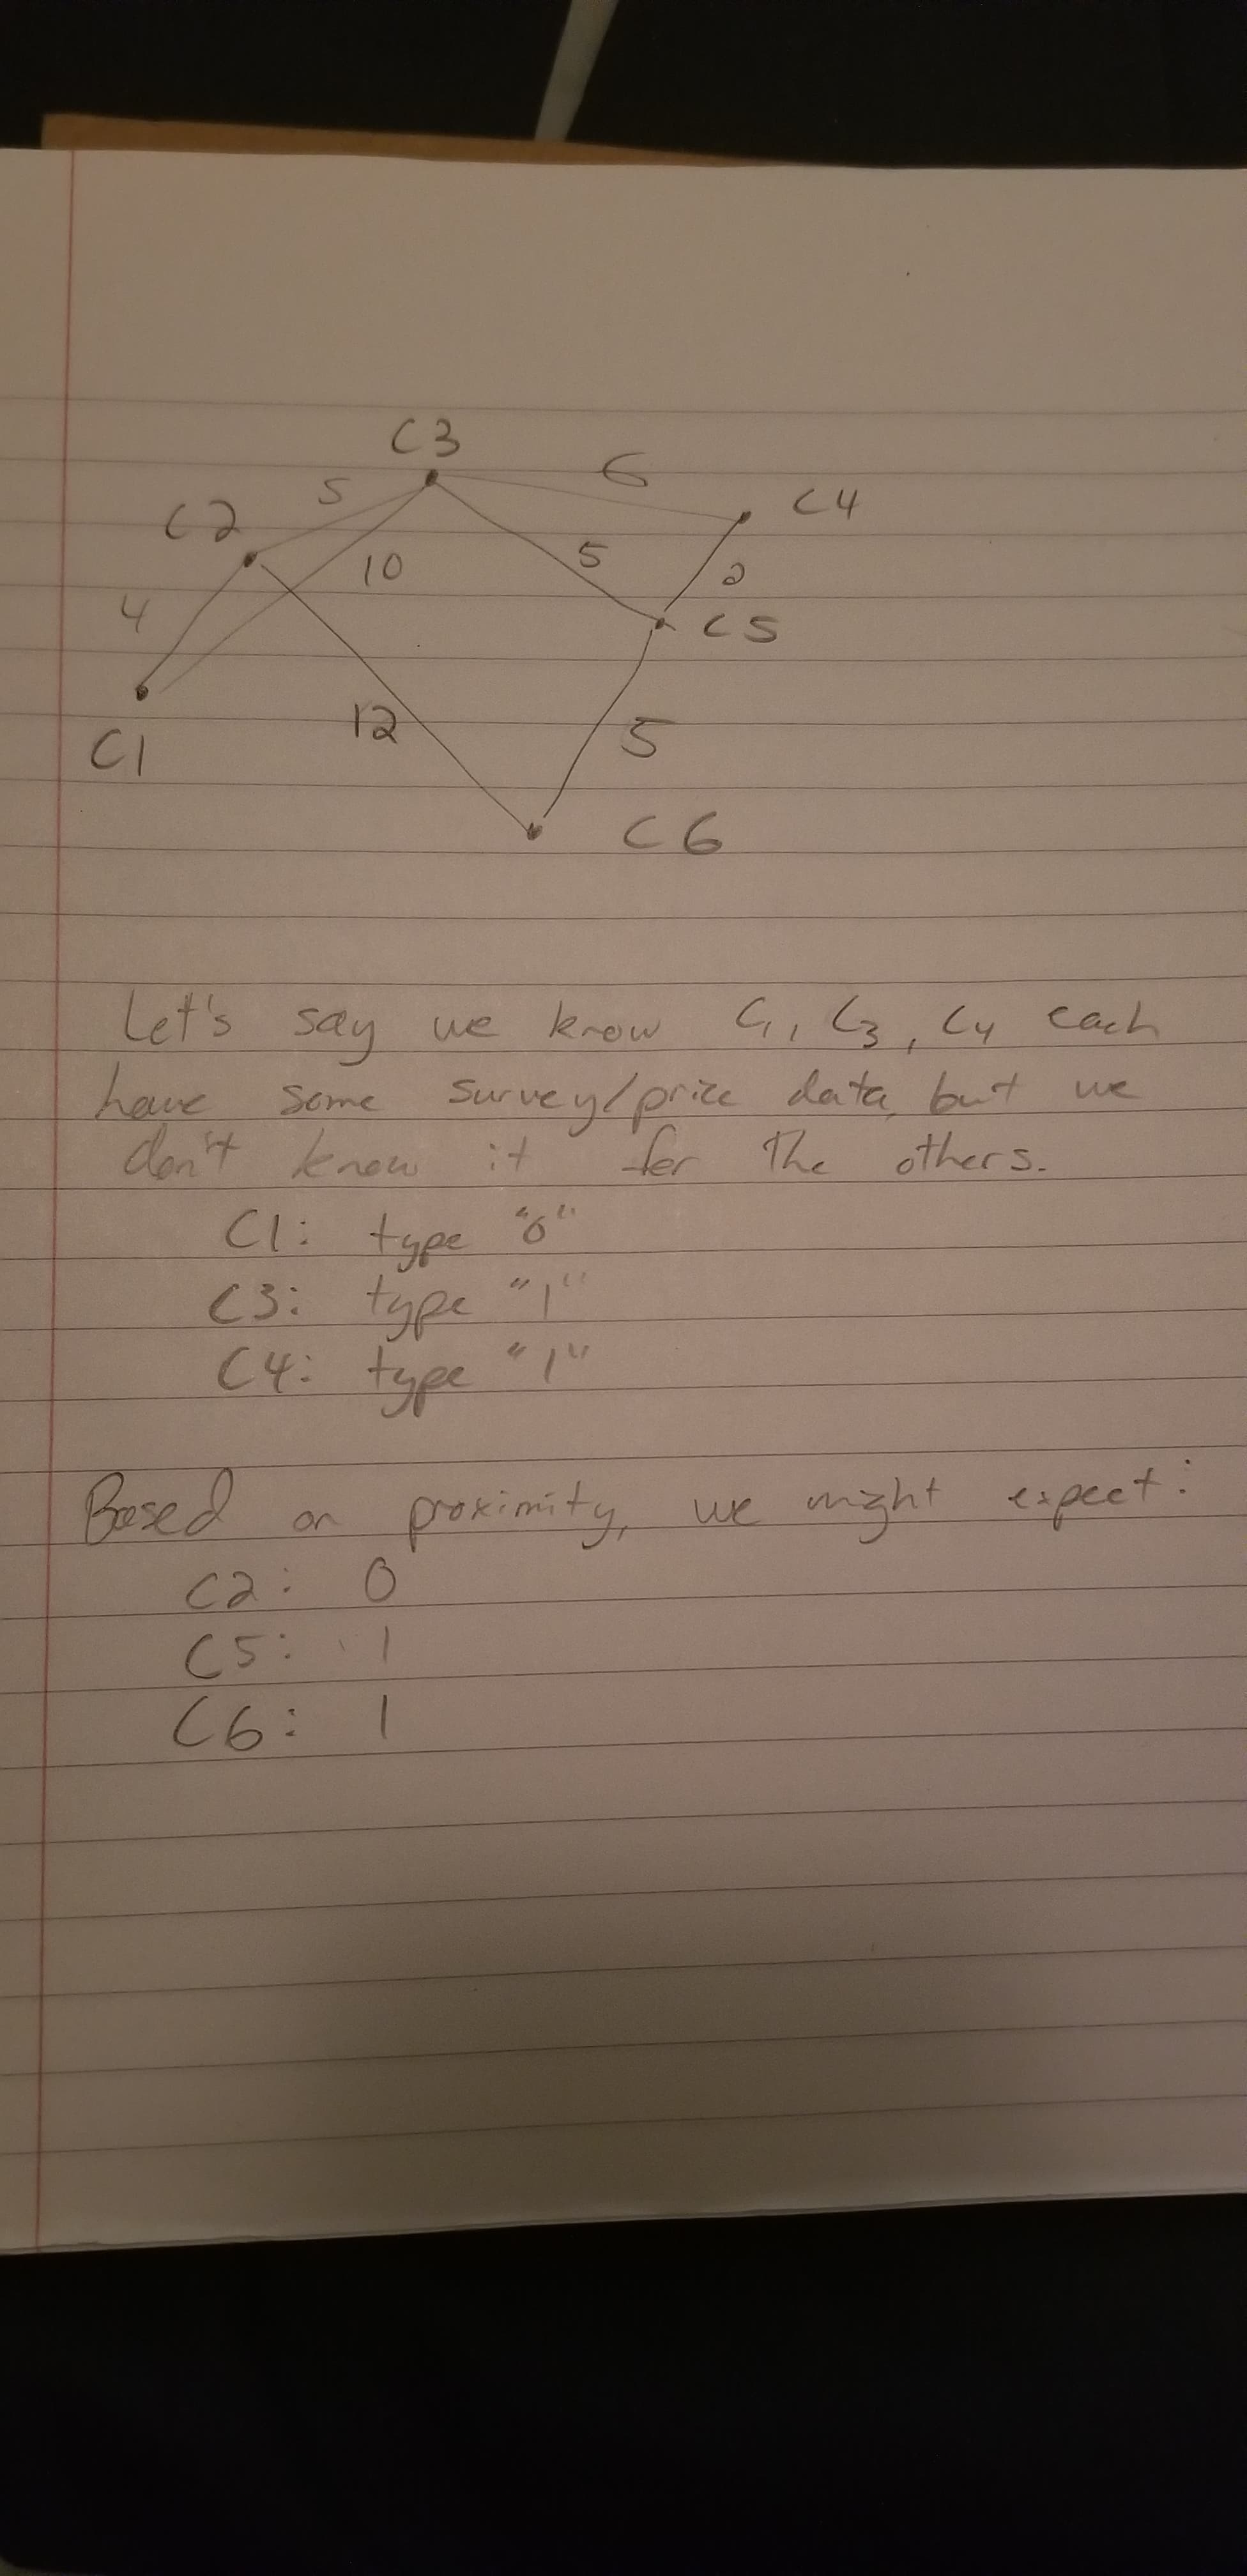 C3
6
5
C4
C2
10
5
2
4
C5
12
5
C1
C6
Let's say we know C1, C3, C4 each
have some survey/price data, but we
don't know it for the others.
C1: type "0"
C3: type "1"
C4: type "1"
Based on proximity, we might expect:
C2: 0
C5: 1
C6: 1